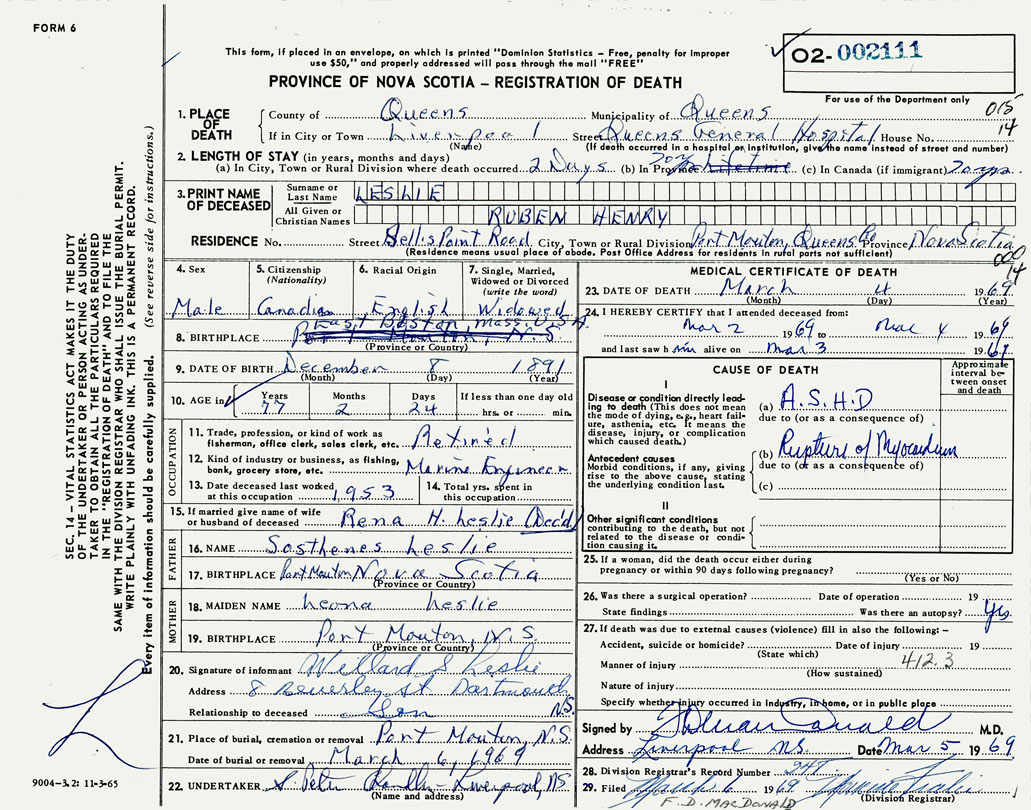 FORM 6
This form, if placed in an envelope, on which is printed "Dominion Statistics – Free, penalty for improper
use $50," and properly addressed will pass through the mail "FREE"
PROVINCE OF NOVA SCOTIA – REGISTRATION OF DEATH
02-002111
For use of the Department only
015
14
1. PLACE OF DEATH
County of Queens Municipality of Queens
If in City or Town Liverpool Street Queens General Hospital House No.
(Name) (If death occurred in a hospital or institution, give the name instead of street and number)
2. LENGTH OF STAY (in years, months and days)
(a) In City, Town or Rural Division where death occurred 2 Days (b) In Province Lifetime (c) In Canada (if immigrant)
3. PRINT NAME OF DECEASED
Surname or Last Name LESLIE
All Given or Christian Names RUBEN HENRY
RESIDENCE No. Street Bellis Point Road City, Town or Rural Division Port Mouton, Queens Co Province Nova Scotia
(Residence means usual place of abode. Post Office Address for residents in rural parts not sufficient)
000
14
4. Sex Male
5. Citizenship (Nationality) Canadian
6. Racial Origin English
7. Single, Married, Widowed or Divorced (write the word) Widowed
East Boston Mass. U.S.A.
8. BIRTHPLACE Port Mouton, N.S.
(Province or Country)
9. DATE OF BIRTH December 8 1891
(Month) (Day) (Year)
10. AGE in Years 77 Months 2 Days 24 If less than one day old hrs. or min.
OCCUPATION
11. Trade, profession, or kind of work as fisherman, office clerk, sales clerk, etc. Retired
12. Kind of industry or business, as fishing, bank, grocery store, etc. Marine Engineer
13. Date deceased last worked at this occupation 1953
14. Total yrs. spent in this occupation
15. If married give name of wife or husband of deceased Rena H. Leslie (Dec'd)
FATHER
16. NAME Sosthenes Leslie
17. BIRTHPLACE Port Mouton, Nova Scotia
(Province or Country)
MOTHER
18. MAIDEN NAME Leona Leslie
19. BIRTHPLACE Port Mouton, N.S.
(Province or Country)
20. Signature of informant Willard S Leslie
Address 8 Beverley St Dartmouth N.S.
Relationship to deceased Son
21. Place of burial, cremation or removal Port Mouton, N.S.
Date of burial or removal March 6, 1969
22. UNDERTAKER Liverpool, NS
(Name and address)
MEDICAL CERTIFICATE OF DEATH
23. DATE OF DEATH March 4 1969
(Month) (Day) (Year)
24. I HEREBY CERTIFY that I attended deceased from:
Mar 2 1969 to Mar 4 1969
and last saw him alive on Mar 3 1969
CAUSE OF DEATH
Approximate interval between onset and death
I
Disease or condition directly leading to death (This does not mean the mode of dying, e.g., heart failure, asthenia, etc. It means the disease, injury, or complication which caused death.)
(a) A.S.H.D
due to (or as a consequence of)
Antecedent causes
Morbid conditions, if any, giving rise to the above cause, stating the underlying condition last.
(b) Rupture of Myocardium
due to (or as a consequence of)
(c)
II
Other significant conditions
contributing to the death, but not related to the disease or condition causing it.
25. If a woman, did the death occur either during pregnancy or within 90 days following pregnancy?
(Yes or No)
26. Was there a surgical operation? Date of operation 19
State findings Was there an autopsy? Yes
27. If death was due to external causes (violence) fill in also the following: –
Accident, suicide or homicide? Date of injury 19
(State which)
Manner of injury 412.3
(How sustained)
Nature of injury
Specify whether injury occurred in industry, in home, or in public place
Signed by M.D.
Address Liverpool NS. Date Mar 5 1969
28. Division Registrar's Record Number
29. Filed March 6 1969
(Division Registrar)
F. D. MACDONALD
SEC. 14 – VITAL STATISTICS ACT MAKES IT THE DUTY
OF THE UNDERTAKER OR PERSON ACTING AS UNDER-
TAKER TO OBTAIN ALL THE PARTICULARS REQUIRED
IN THE "REGISTRATION OF DEATH" AND TO FILE THE
SAME WITH THE DIVISION REGISTRAR WHO SHALL ISSUE THE BURIAL PERMIT.
WRITE PLAINLY WITH UNFADING INK. THIS IS A PERMANENT RECORD.
Every item of information should be carefully supplied. (See reverse side for instructions.)
9004-3.2: 11-3-65